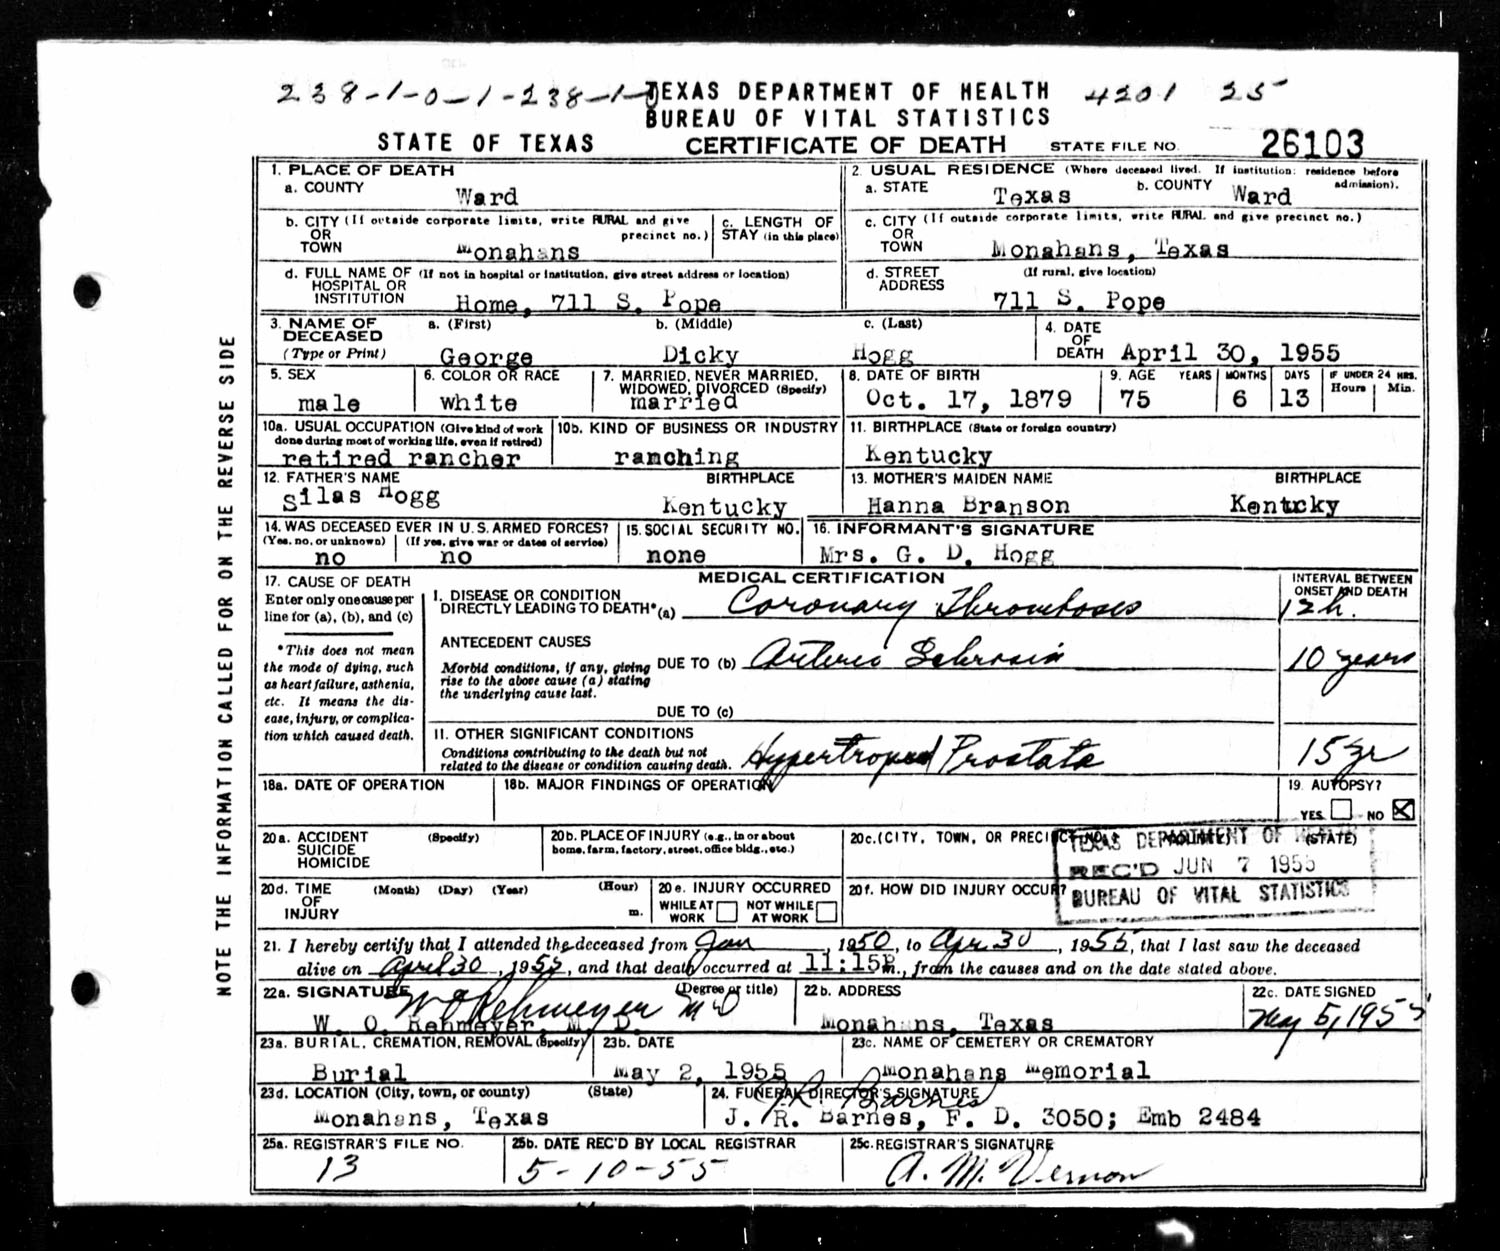 238-1-0-1-238-1-0 TEXAS DEPARTMENT OF HEALTH 4201 25
BUREAU OF VITAL STATISTICS
STATE OF TEXAS CERTIFICATE OF DEATH STATE FILE NO. 26103
NOTE THE INFORMATION CALLED FOR ON THE REVERSE SIDE
1. PLACE OF DEATH
a. COUNTY Ward
2. USUAL RESIDENCE (Where deceased lived. If institution: residence before admission).
a. STATE Texas b. COUNTY Ward
b. CITY (If outside corporate limits, write RURAL and give precinct no.)
OR
TOWN Monahans
c. LENGTH OF
STAY (in this place)
c. CITY (If outside corporate limits, write RURAL and give precinct no.)
OR
TOWN Monahans, Texas
d. FULL NAME OF (If not in hospital or institution, give street address or location)
HOSPITAL OR
INSTITUTION Home, 711 S. Pope
d. STREET (If rural, give location)
ADDRESS 711 S. Pope
3. NAME OF a. (First) b. (Middle) c. (Last)
DECEASED
(Type or Print) George Dicky Hogg
4. DATE
OF
DEATH April 30, 1955
5. SEX
male
6. COLOR OR RACE
white
7. MARRIED, NEVER MARRIED,
WIDOWED, DIVORCED (Specify)
married
8. DATE OF BIRTH
Oct. 17, 1879
9. AGE YEARS MONTHS DAYS IF UNDER 24 HRS.
Hours Min.
75 6 13
10a. USUAL OCCUPATION (Give kind of work
done during most of working life, even if retired)
retired rancher
10b. KIND OF BUSINESS OR INDUSTRY
ranching
11. BIRTHPLACE (State or foreign country)
Kentucky
12. FATHER'S NAME BIRTHPLACE
Silas Hogg Kentucky
13. MOTHER'S MAIDEN NAME BIRTHPLACE
Hanna Branson Kentrcky
14. WAS DECEASED EVER IN U.S. ARMED FORCES?
(Yes, no, or unknown) (If yes, give war or dates of service)
no no
15. SOCIAL SECURITY NO.
none
16. INFORMANT'S SIGNATURE
Mrs. G. D. Hogg
17. CAUSE OF DEATH
Enter only one cause per
line for (a), (b), and (c)
*This does not mean
the mode of dying, such
as heart failure, asthenia,
etc. It means the dis-
ease, injury, or complica-
tion which caused death.
MEDICAL CERTIFICATION
INTERVAL BETWEEN
ONSET AND DEATH
I. DISEASE OR CONDITION
DIRECTLY LEADING TO DEATH* (a) Coronary Thrombosis 12h.
ANTECEDENT CAUSES
Morbid conditions, if any, giving
rise to the above cause (a) stating
the underlying cause last.
DUE TO (b) Arterio Sclerosis 10 years
DUE TO (c)
II. OTHER SIGNIFICANT CONDITIONS
Conditions contributing to the death but not
related to the disease or condition causing death. Hypertropied Prostate 15 yr
18a. DATE OF OPERATION
18b. MAJOR FINDINGS OF OPERATION
19. AUTOPSY?
YES NO X
20a. ACCIDENT (Specify)
SUICIDE
HOMICIDE
20b. PLACE OF INJURY (e.g., in or about
home, farm, factory, street, office bldg., etc.)
20c. (CITY, TOWN, OR PRECINCT NO.) (COUNTY) (STATE)
TEXAS DEPARTMENT OF HEALTH
REC'D JUN 7 1955
BUREAU OF VITAL STATISTICS
20d. TIME (Month) (Day) (Year) (Hour)
OF
INJURY m.
20e. INJURY OCCURRED
WHILE AT WORK NOT WHILE AT WORK
20f. HOW DID INJURY OCCUR?
21. I hereby certify that I attended the deceased from Jan, 1950, to Apr 30, 1955, that I last saw the deceased
alive on April 30, 1955, and that death occurred at 11:15P m., from the causes and on the date stated above.
22a. SIGNATURE (Degree or title)
W O Rehmeyer MD
W. O. Rehmeyer, M. D.
22b. ADDRESS
Monahans, Texas
22c. DATE SIGNED
May 5, 1955
23a. BURIAL, CREMATION, REMOVAL (Specify)
Burial
23b. DATE
May 2, 1955
23c. NAME OF CEMETERY OR CREMATORY
Monahans Memorial
23d. LOCATION (City, town, or county) (State)
Monahans, Texas
24. FUNERAL DIRECTOR'S SIGNATURE
J. R. Barnes
J. R. Barnes, F. D. 3050; Emb 2484
25a. REGISTRAR'S FILE NO.
13
25b. DATE REC'D BY LOCAL REGISTRAR
5-10-55
25c. REGISTRAR'S SIGNATURE
A. M. Vernon